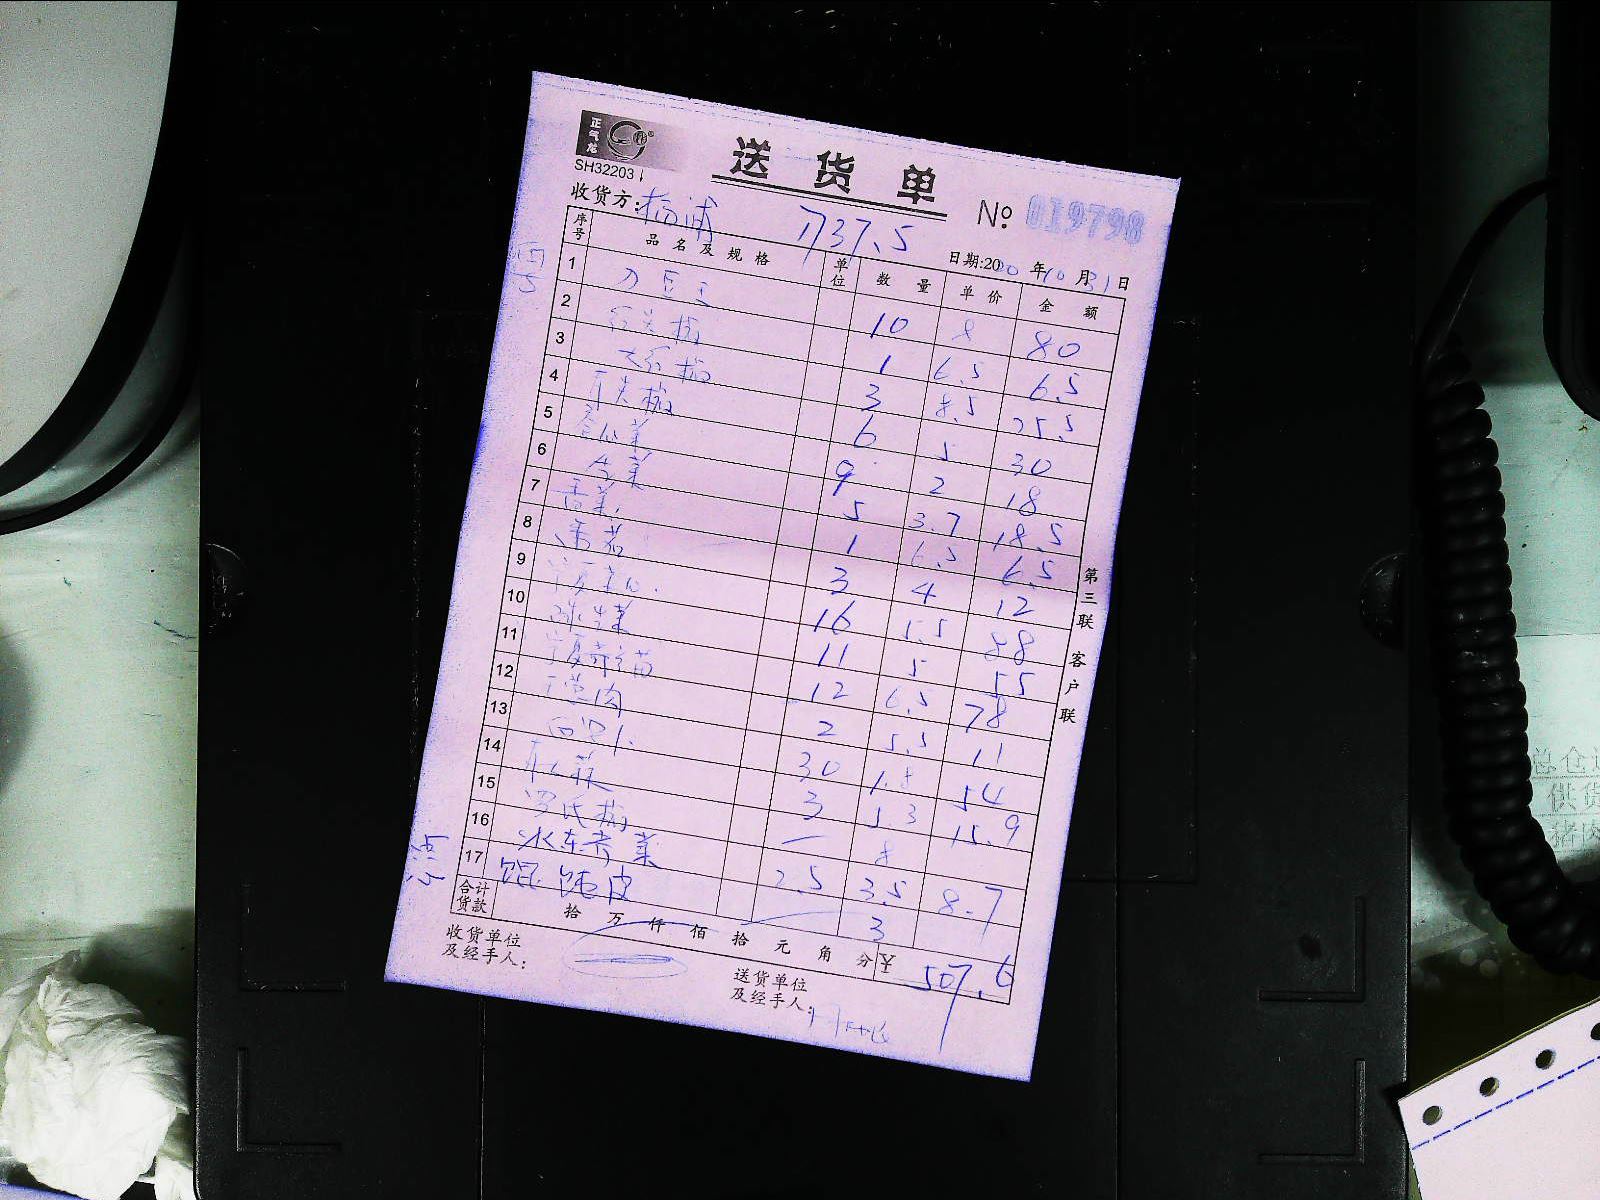 正气龙
SH32203
送货单
No 019798
收货方:杨浦 1737.5
日期:2020年10月31日
序号 品名及规格 单位 数量 单价 金额
1 刀豆王 10 8 80
2 红尖椒 1 6.5 6.5
3 大红椒 3 8.5 25.5
4 尖椒 6 5 30
5 菜 9 2 18
6 生菜 5 3.7 18.5
7 香菜 1 6.5 6.5
8 番茄 3 4 12
9 宁夏菜心 16 5.5 88
10 球生菜 11 5 55
11 宁夏苗 12 6.5 78
12 肉 2 5.5 11
13 30 1.8 54
14 3 5.3 15.9
15 椒 一 8
16 水东芥菜 2.5 3.5 8.7
17 馄饨皮 3
合计货款 拾 万 仟 佰 拾 元 角 分 ¥ 507.6
收货单位及经手人:
送货单位及经手人:
第三联 客户联
总仓
供货
猪肉